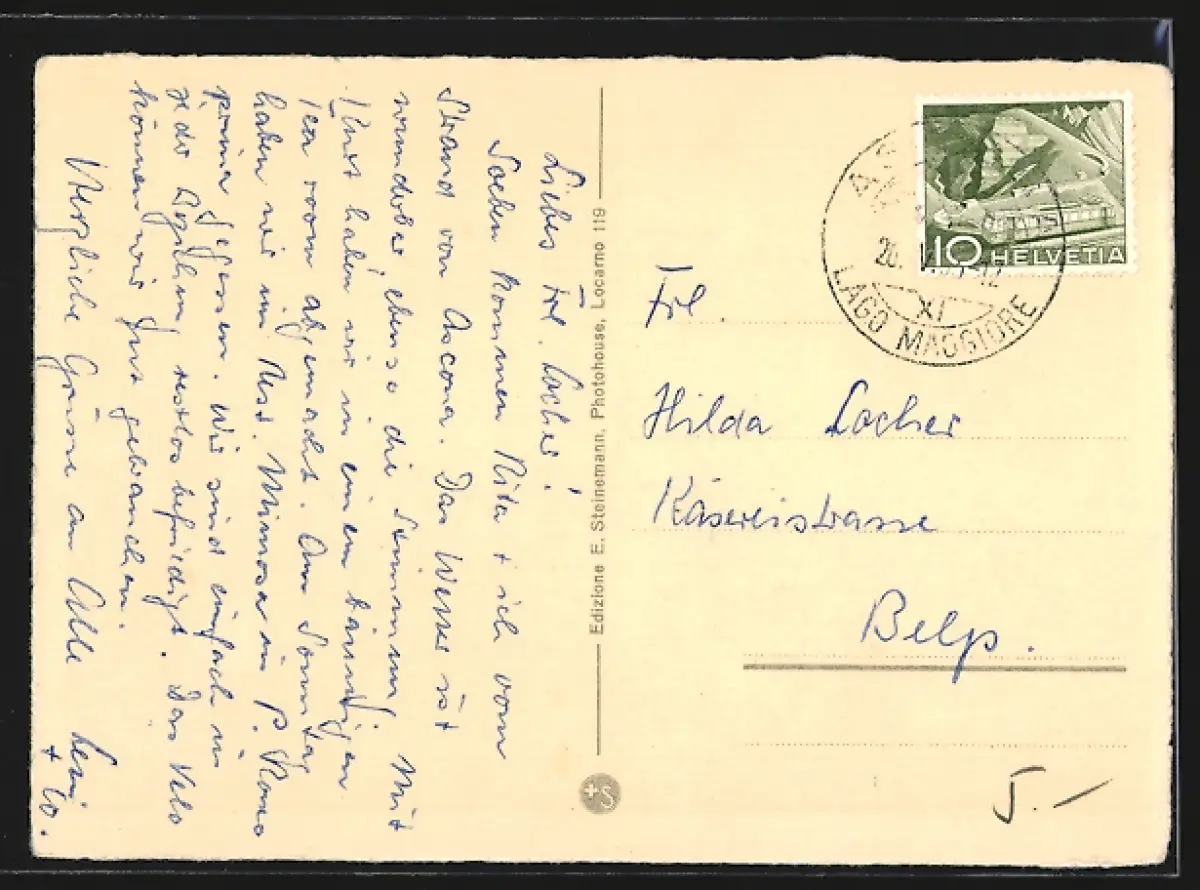 Liebes Frl. Locher!
Soeben kommen Rita + ich vom
Strand von Ascona. Das Wasser ist
wunderbar, ebenso die Stimmung. Mit
Kurt haben wir in einem
abgemacht. Am Sonntag
haben wir im Rest. Mimosa in P. Ronco
prima gegessen. Wir sind einfach in
jeder restlos befriedigt. Das Velo
können wir gut gebrauchen.
Herzliche Grüsse an Alle
+ Co.
Edizione E. Steinemann, Photohouse, Locarno 119
+S
HELVETIA
10
20.
XI
LAGO MAGGIORE
Frl.
Hilda Locher
Käsereistrasse
Belp.
5.-